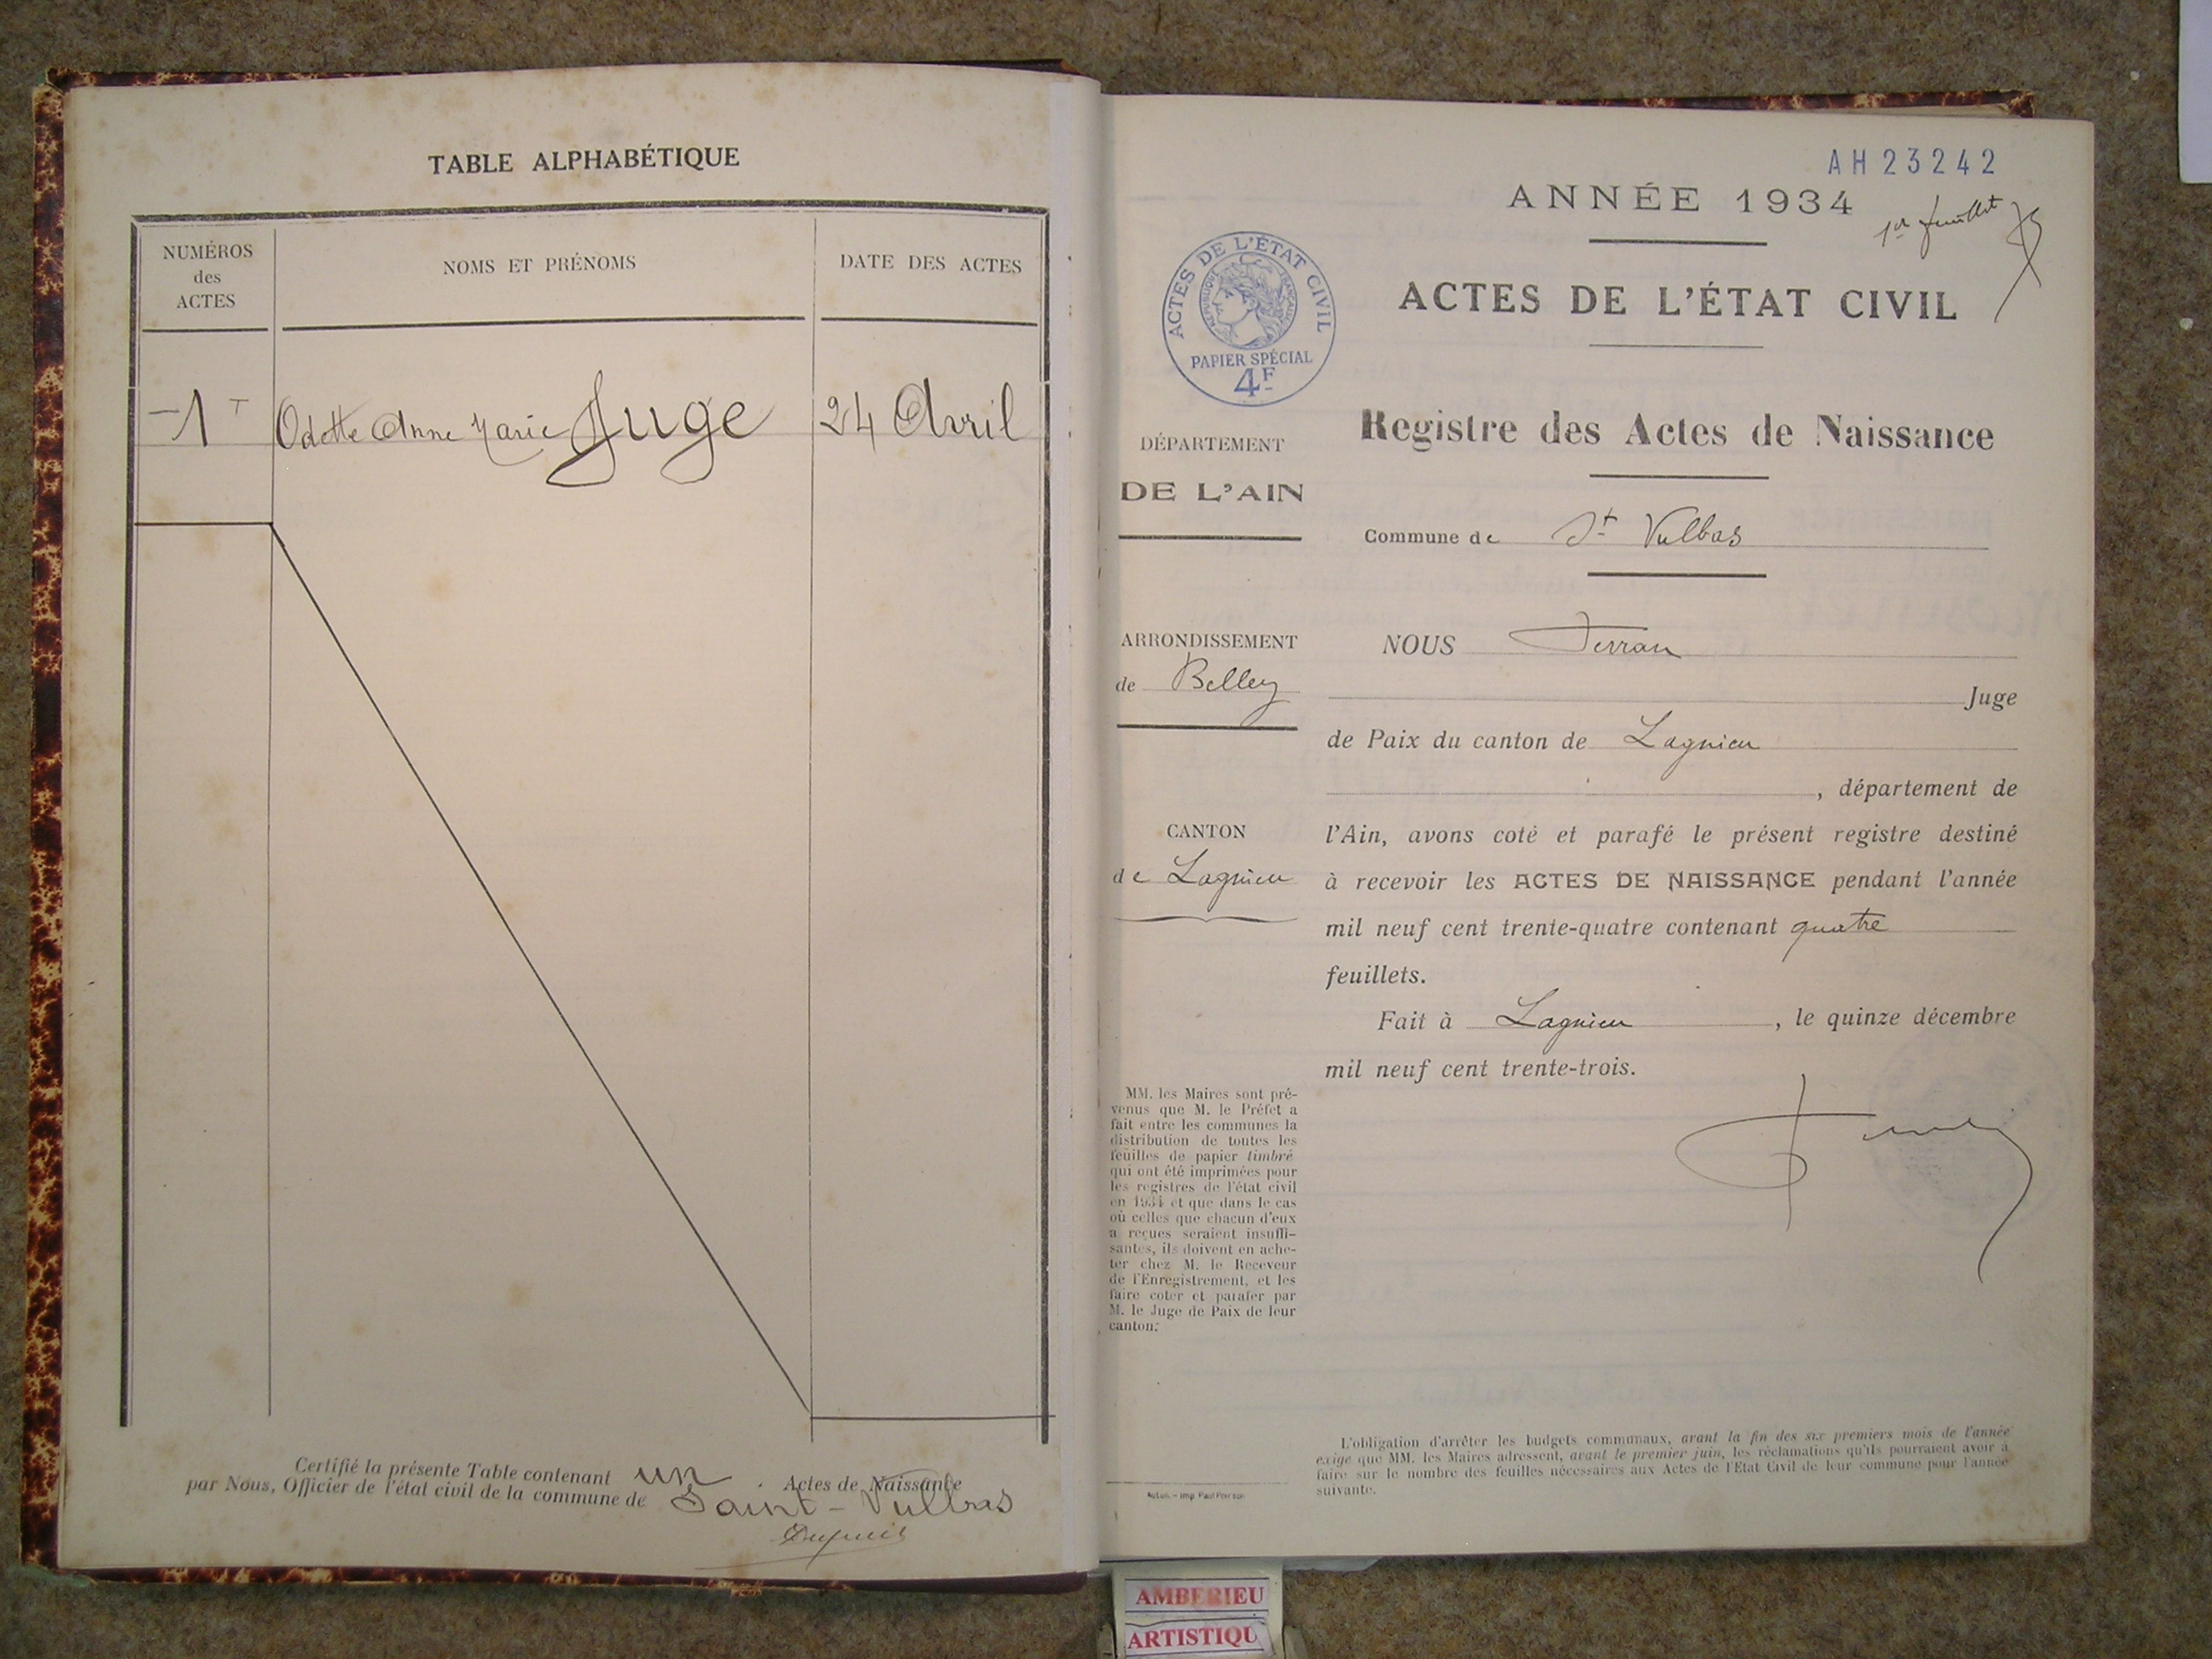 TABLE ALPHABÉTIQUE
NUMÉROS
des
ACTES
NOMS ET PRÉNOMS
DATE DES ACTES
1
Odette Anne Marie Juge
24 Avril
Certifié la présente Table contenant un Actes de Naissance
par Nous, Officier de l'état civil de la commune de Saint-Vulbas
Dupuis
AH 23242
ANNÉE 1934
1er feuillet
ACTES DE L'ÉTAT CIVIL
ACTES DE L'ÉTAT CIVIL
RÉPUBLIQUE FRANÇAISE
PAPIER SPÉCIAL
4F
Registre des Actes de Naissance
Commune de St Vulbas
DÉPARTEMENT
DE L'AIN
ARRONDISSEMENT
de Belley
CANTON
de Lagnieu
MM. les Maires sont pré-
venus que M. le Préfet a
fait entre les communes la
distribution de toutes les
feuilles de papier timbré
qui ont été imprimées pour
les registres de l'état civil
en 1934 et que dans le cas
où celles que chacun d'eux
a reçues seraient insuffi-
santes, ils doivent en ache-
ter chez M. le Receveur
de l'Enregistrement, et les
faire coter et parafer par
M. le Juge de Paix de leur
canton.
NOUS Ferran
Juge
de Paix du canton de Lagnieu
, département de
l'Ain, avons coté et parafé le présent registre destiné
à recevoir les ACTES DE NAISSANCE pendant l'année
mil neuf cent trente-quatre contenant quatre
feuillets.
Fait à Lagnieu , le quinze décembre
mil neuf cent trente-trois.
L'obligation d'arrêter les budgets communaux, avant la fin des six premiers mois de l'année
exige que MM. les Maires adressent, avant le premier juin, les réclamations qu'ils pourraient avoir à
faire sur le nombre des feuilles nécessaires aux Actes de l'Etat Civil de leur commune pour l'année
suivante.
AMBERIEU
ARTISTIQU